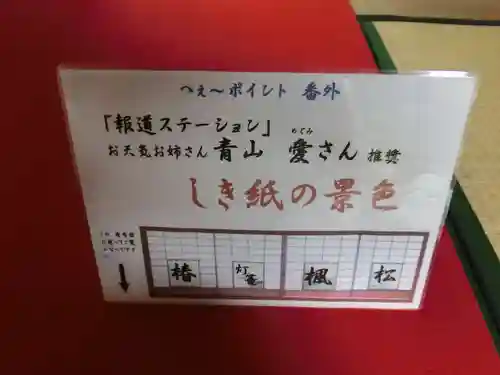 へぇ～ポイント 番外
「報道ステーション」
お天気お姉さん 青山 愛さん 推奨
めぐみ
しき紙の景色
椿 灯篭 楓 松